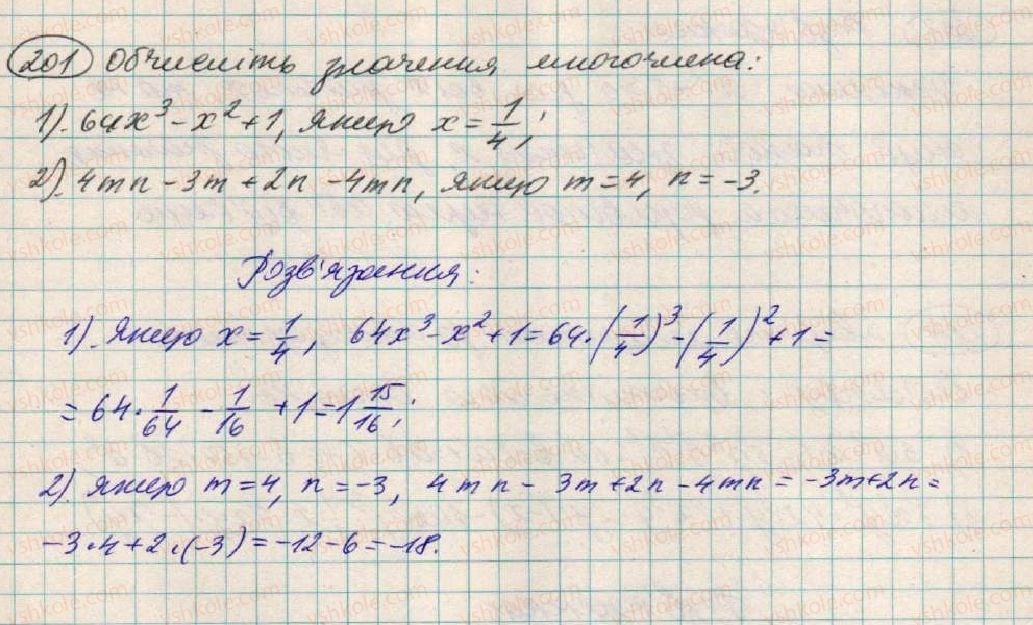 201 Обчисліть значення многочлена:
1). 64x³ - x² + 1, якщо x = 1/4;
2). 4mn - 3m + 2n - 4mn, якщо m = 4, n = -3.
Розв'язання:
1). Якщо x = 1/4, 64x³ - x² + 1 = 64 · (1/4)³ - (1/4)² + 1 =
= 64 · 1/64 - 1/16 + 1 = 1 15/16;
2) якщо m = 4, n = -3, 4mn - 3m + 2n - 4mn = -3m + 2n =
-3 · 4 + 2 · (-3) = -12 - 6 = -18.
vshkole.com